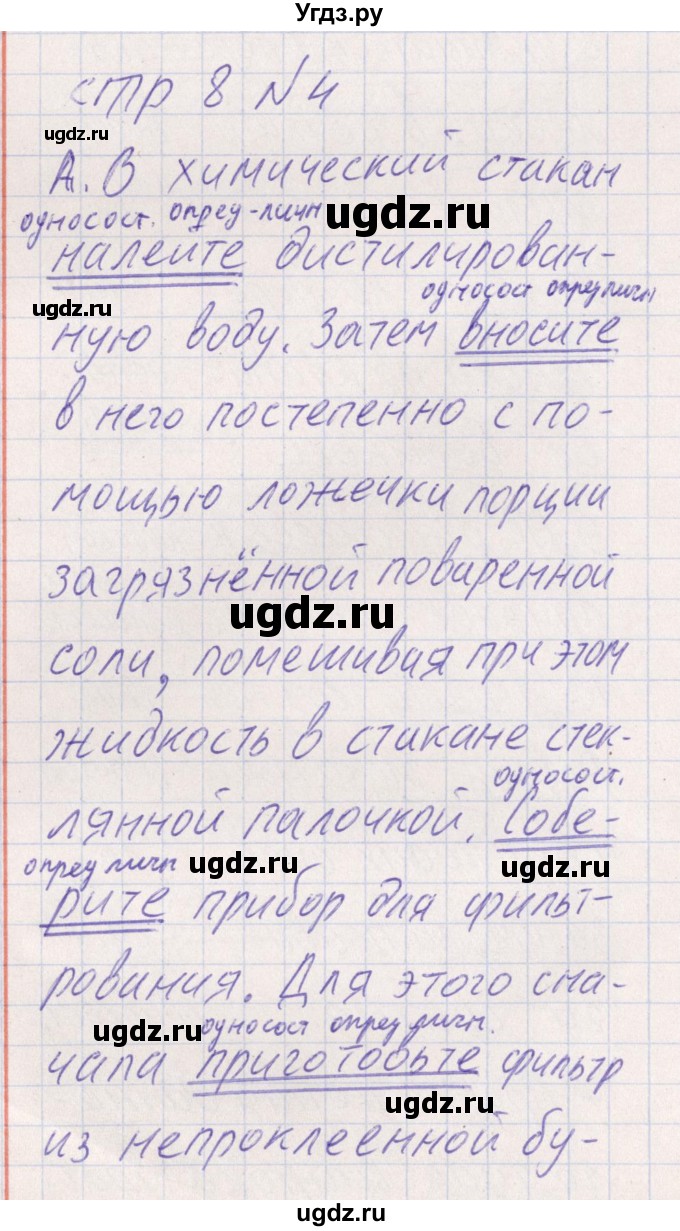 Угдз.ру
стр 8 №4
ugdz.ru
А. В химический стакан
односост. опред-личн
ugdz.ru
налейте дистилирован-
односост опред личн
ugdz.ru
ную воду. Затем вносите
в него постепенно с по-
мощью ложечки порции
загрязнённой поваренной
ugdz.ru
соли, помешивая при этом
жидкость в стакане стек-
односост.
лянной палочкой. Собе-
опред личн ugdz.ru ugdz.ru
рите прибор для фильт-
рования. Для этого сна-
ugdz.ru односост опред личн.
чала приготовьте фильтр
ugdz.ru
из непроклеенной бу-
ugdz.ru